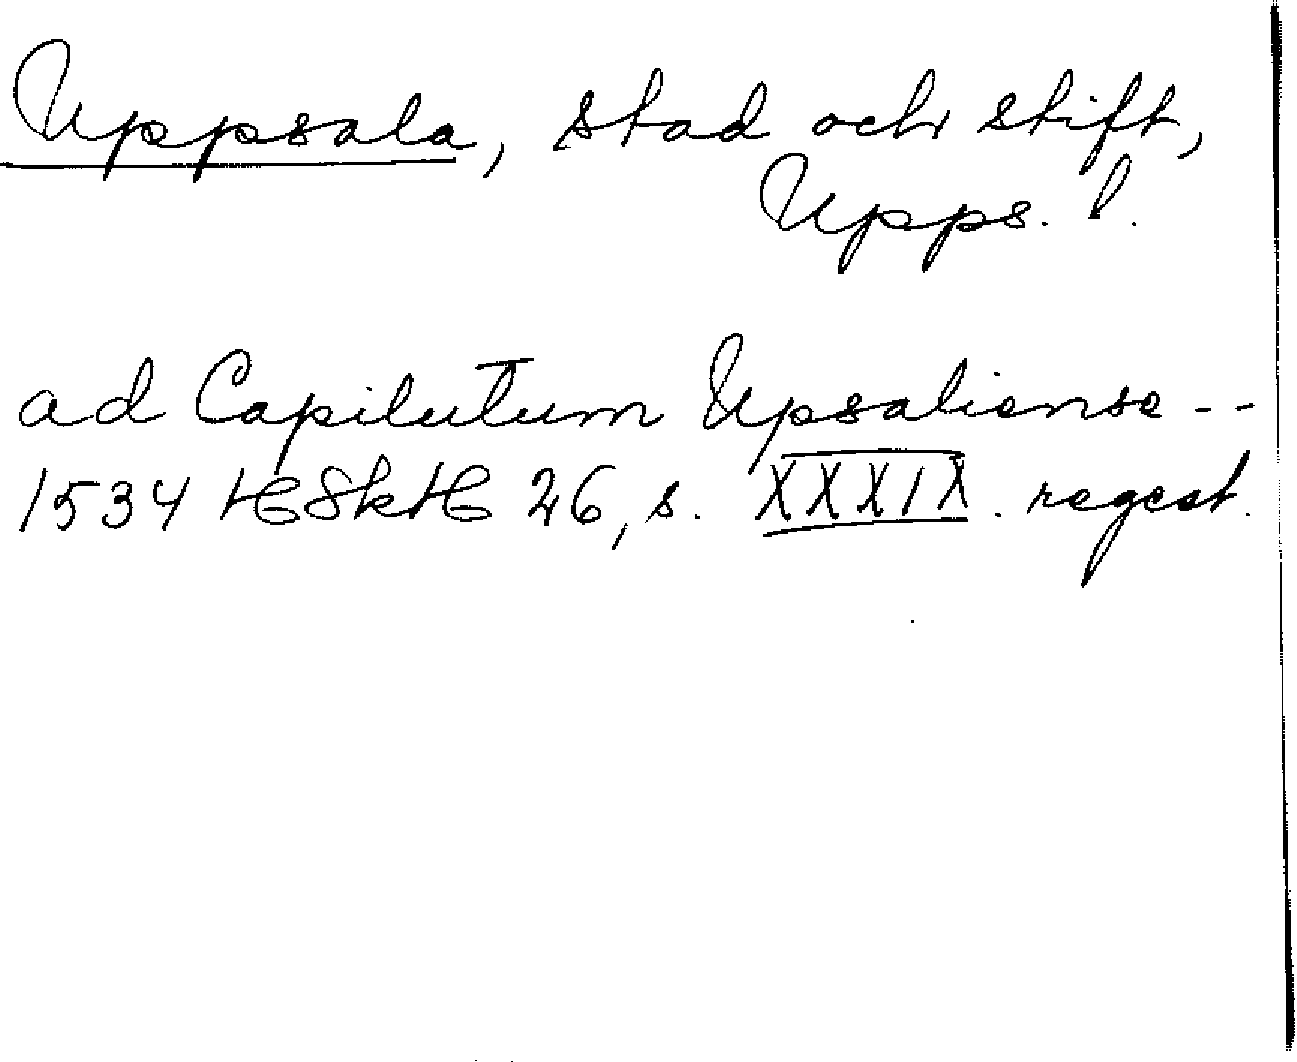 Uppsala, stad och stift,
Upps. l.
ad Capitulum Upsaliense --
1534 HSkH 26, s. XXXIX. regest.